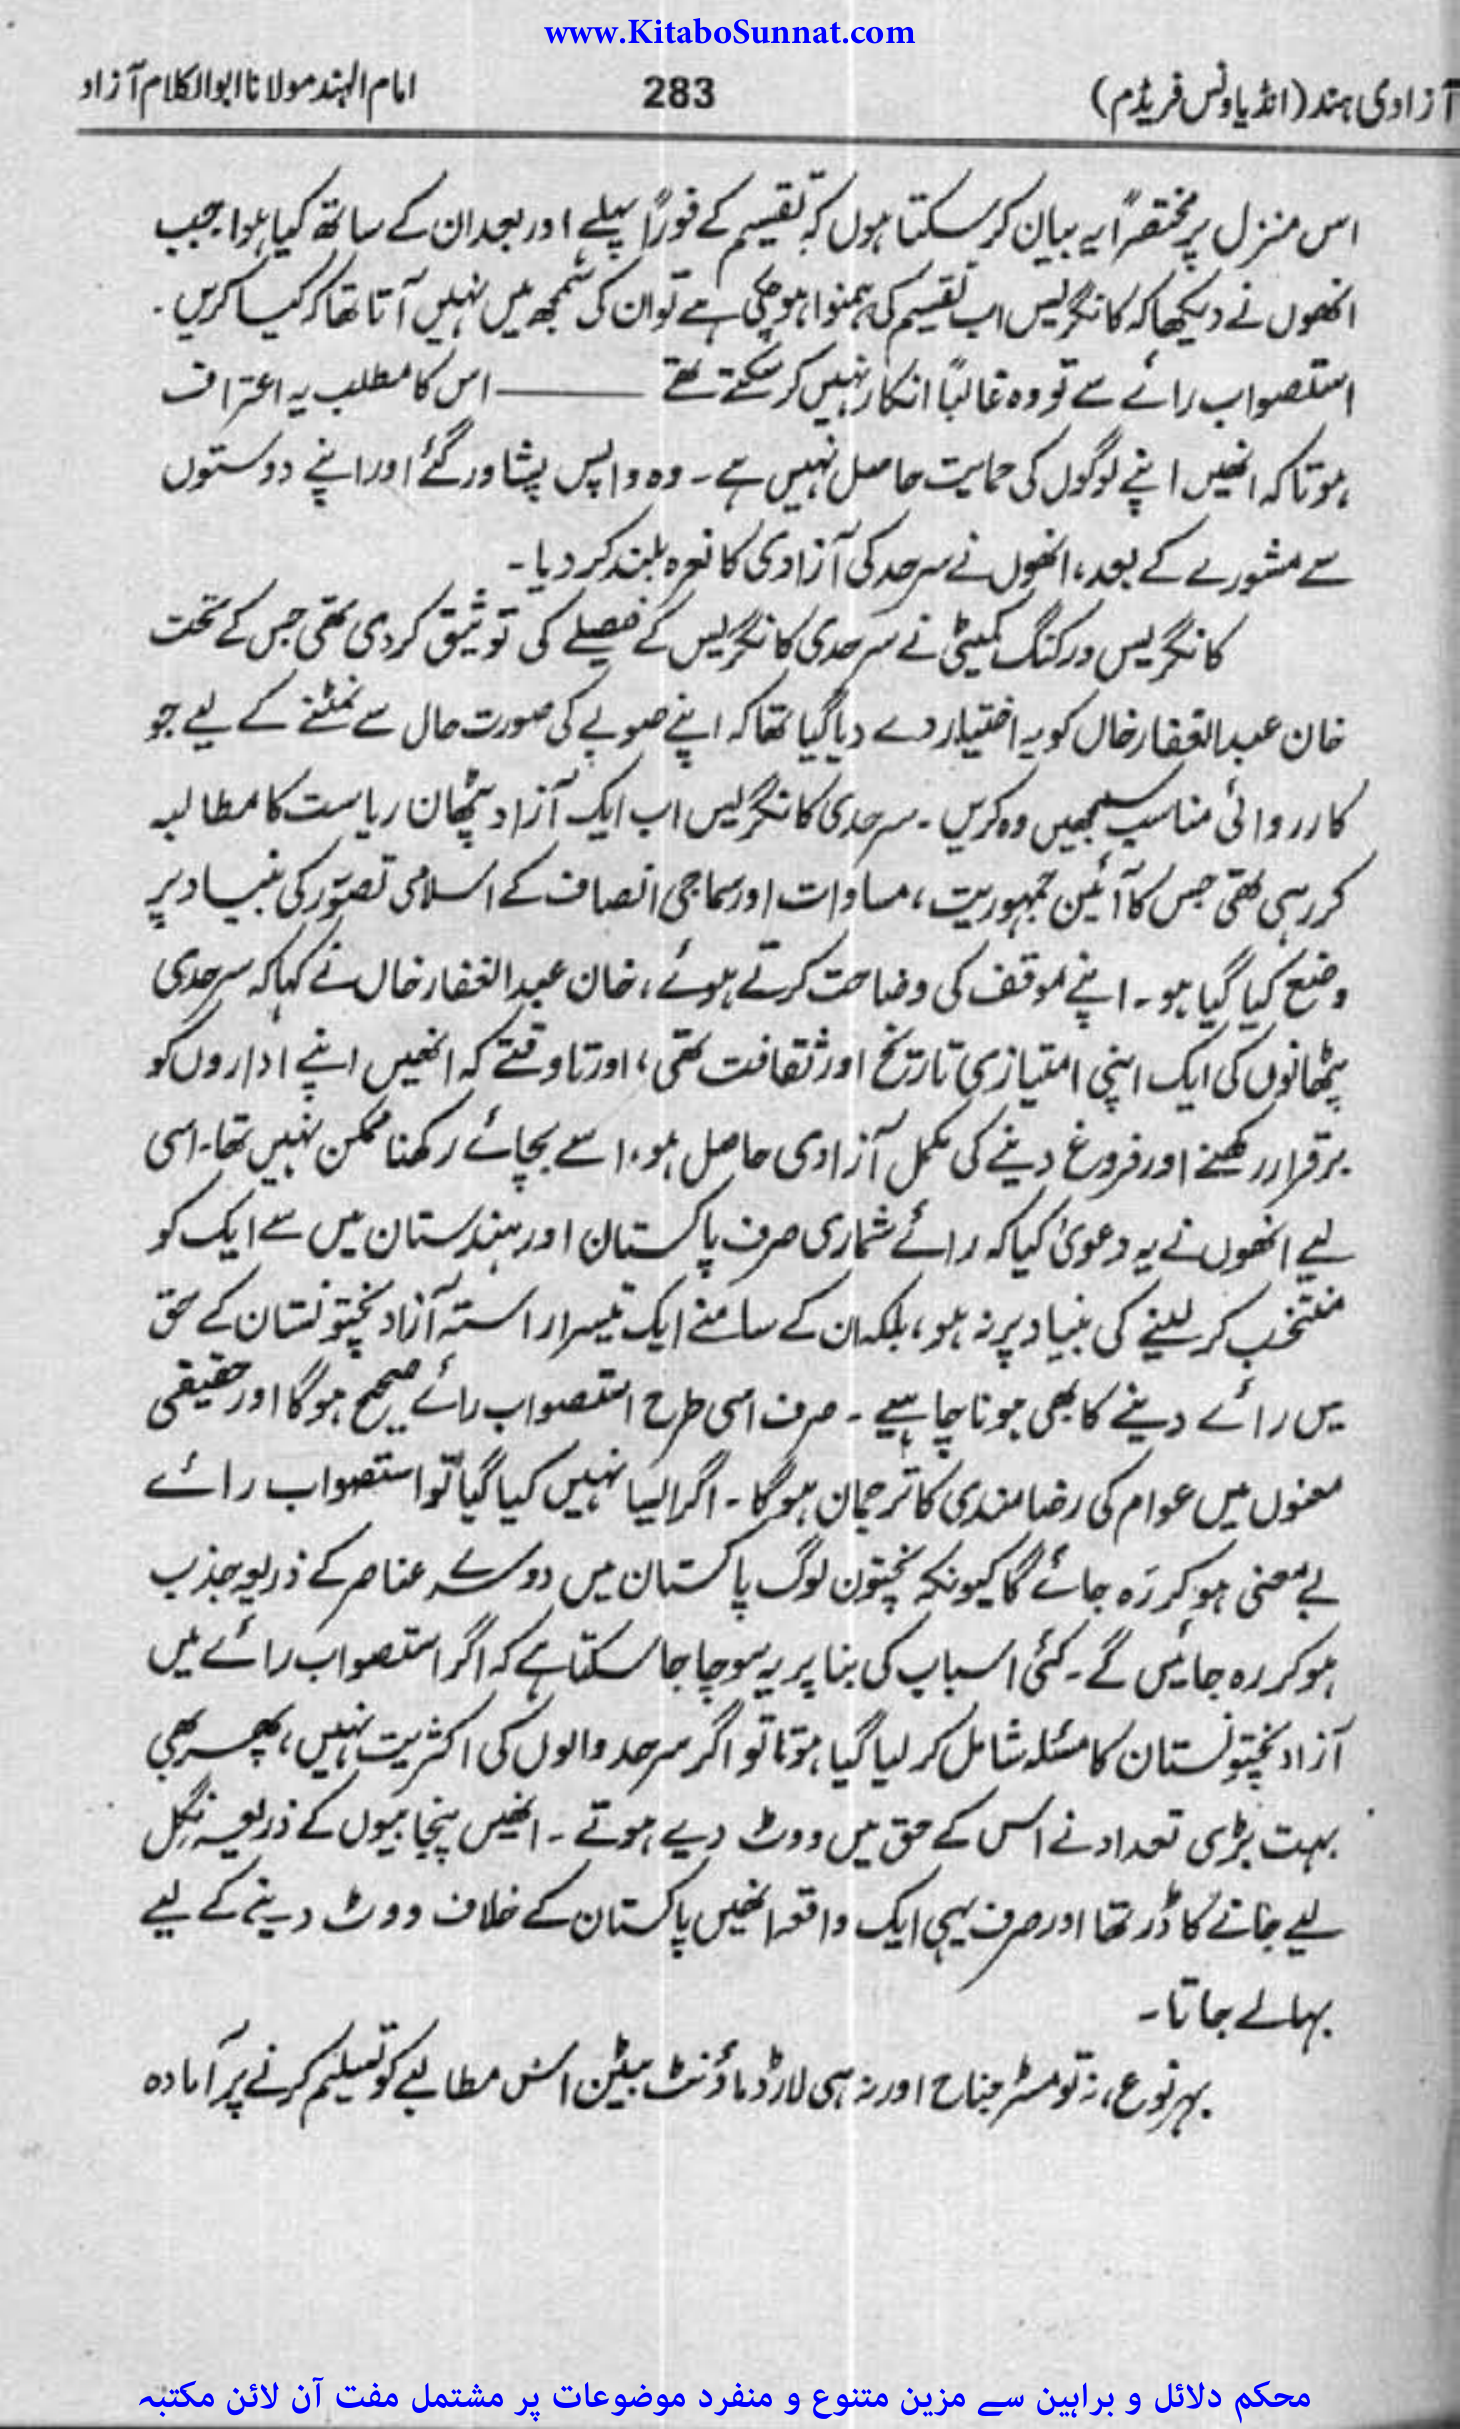 www.KitaboSunnat.com
آزادی ہند (انڈیا ونس فریڈم) 283 امام الہند مولانا ابوالکلام آزاد
اس منزل پر مختصراً یہ بیان کر سکتا ہوں کہ تقسیم کے فوراً پہلے اور بعد ان کے ساتھ کیا ہوا جب
انھوں نے دیکھا کہ کانگریس اب تقسیم کی ہمنوا ہو چکی ہے تو ان کی سمجھ میں نہیں آتا تھا کہ کیا کریں۔
استصواب رائے سے تو وہ غالباً انکار نہیں کر سکتے تھے ——— اس کا مطلب یہ اعتراف
ہوتا کہ انھیں اپنے لوگوں کی حمایت حاصل نہیں ہے۔ وہ واپس پشاور گئے اور اپنے دوستوں
سے مشورے کے بعد، انھوں نے سرحد کی آزادی کا نعرہ بلند کر دیا۔
کانگریس ورکنگ کمیٹی نے سرحدی کانگریس کے فیصلے کی توثیق کر دی تھی جس کے تحت
خان عبدالغفار خاں کو یہ اختیار دے دیا گیا تھا کہ اپنے صوبے کی صورت حال سے نمٹنے کے لیے جو
کارروائی مناسب سمجھیں وہ کریں۔ سرحدی کانگریس اب ایک آزاد پٹھان ریاست کا مطالبہ
کر رہی تھی جس کا آئین جمہوریت، مساوات اور سماجی انصاف کے اسلامی تصوّر کی بنیاد پر
وضع کیا گیا ہو۔ اپنے موقف کی وضاحت کرتے ہوئے، خان عبدالغفار خاں نے کہا کہ سرحدی
پٹھانوں کی ایک اپنی امتیازی تاریخ اور ثقافت تھی، اور تاوقتے کہ انھیں اپنے اداروں کو
برقرار رکھنے اور فروغ دینے کی مکمل آزادی حاصل ہو، اسے بچائے رکھنا ممکن نہیں تھا۔ اسی
لیے انھوں نے یہ دعویٰ کیا کہ رائے شماری صرف پاکستان اور ہندستان میں سے ایک کو
منتخب کر لینے کی بنیاد پر نہ ہو، بلکہ ان کے سامنے ایک تیسرا راستہ آزاد پختونستان کے حق
میں رائے دینے کا بھی ہونا چاہیے۔ صرف اسی طرح استصواب رائے صحیح ہوگا اور حقیقی
معنوں میں عوام کی رضامندی کا ترجمان ہوگا۔ اگر ایسا نہیں کیا گیا تو استصواب رائے
بے معنی ہو کر رَہ جائے گا کیونکہ پختون لوگ پاکستان میں دوسرے عناصر کے ذریعہ جذب
ہو کر رہ جائیں گے۔ کئی اسباب کی بنا پر یہ سوچا جا سکتا ہے کہ اگر استصواب رائے میں
آزاد پختونستان کا مسئلہ شامل کر لیا گیا ہوتا تو اگر سرحد والوں کی اکثریت نہیں، پھر بھی
بہت بڑی تعداد نے اس کے حق میں ووٹ دیے ہوتے۔ انھیں پنجابیوں کے ذریعہ نگل
لیے جانے کا ڈر تھا اور صرف یہی ایک واقعہ انھیں پاکستان کے خلاف ووٹ دینے کے لیے
بہالے جاتا۔
بہر نوع، نہ تو مسٹر جناح اور نہ ہی لارڈ ماؤنٹ بیٹن اس مطالبے کو تسلیم کرنے پر آمادہ
محکم دلائل و براہین سے مزین متنوع و منفرد موضوعات پر مشتمل مفت آن لائن مکتبہ